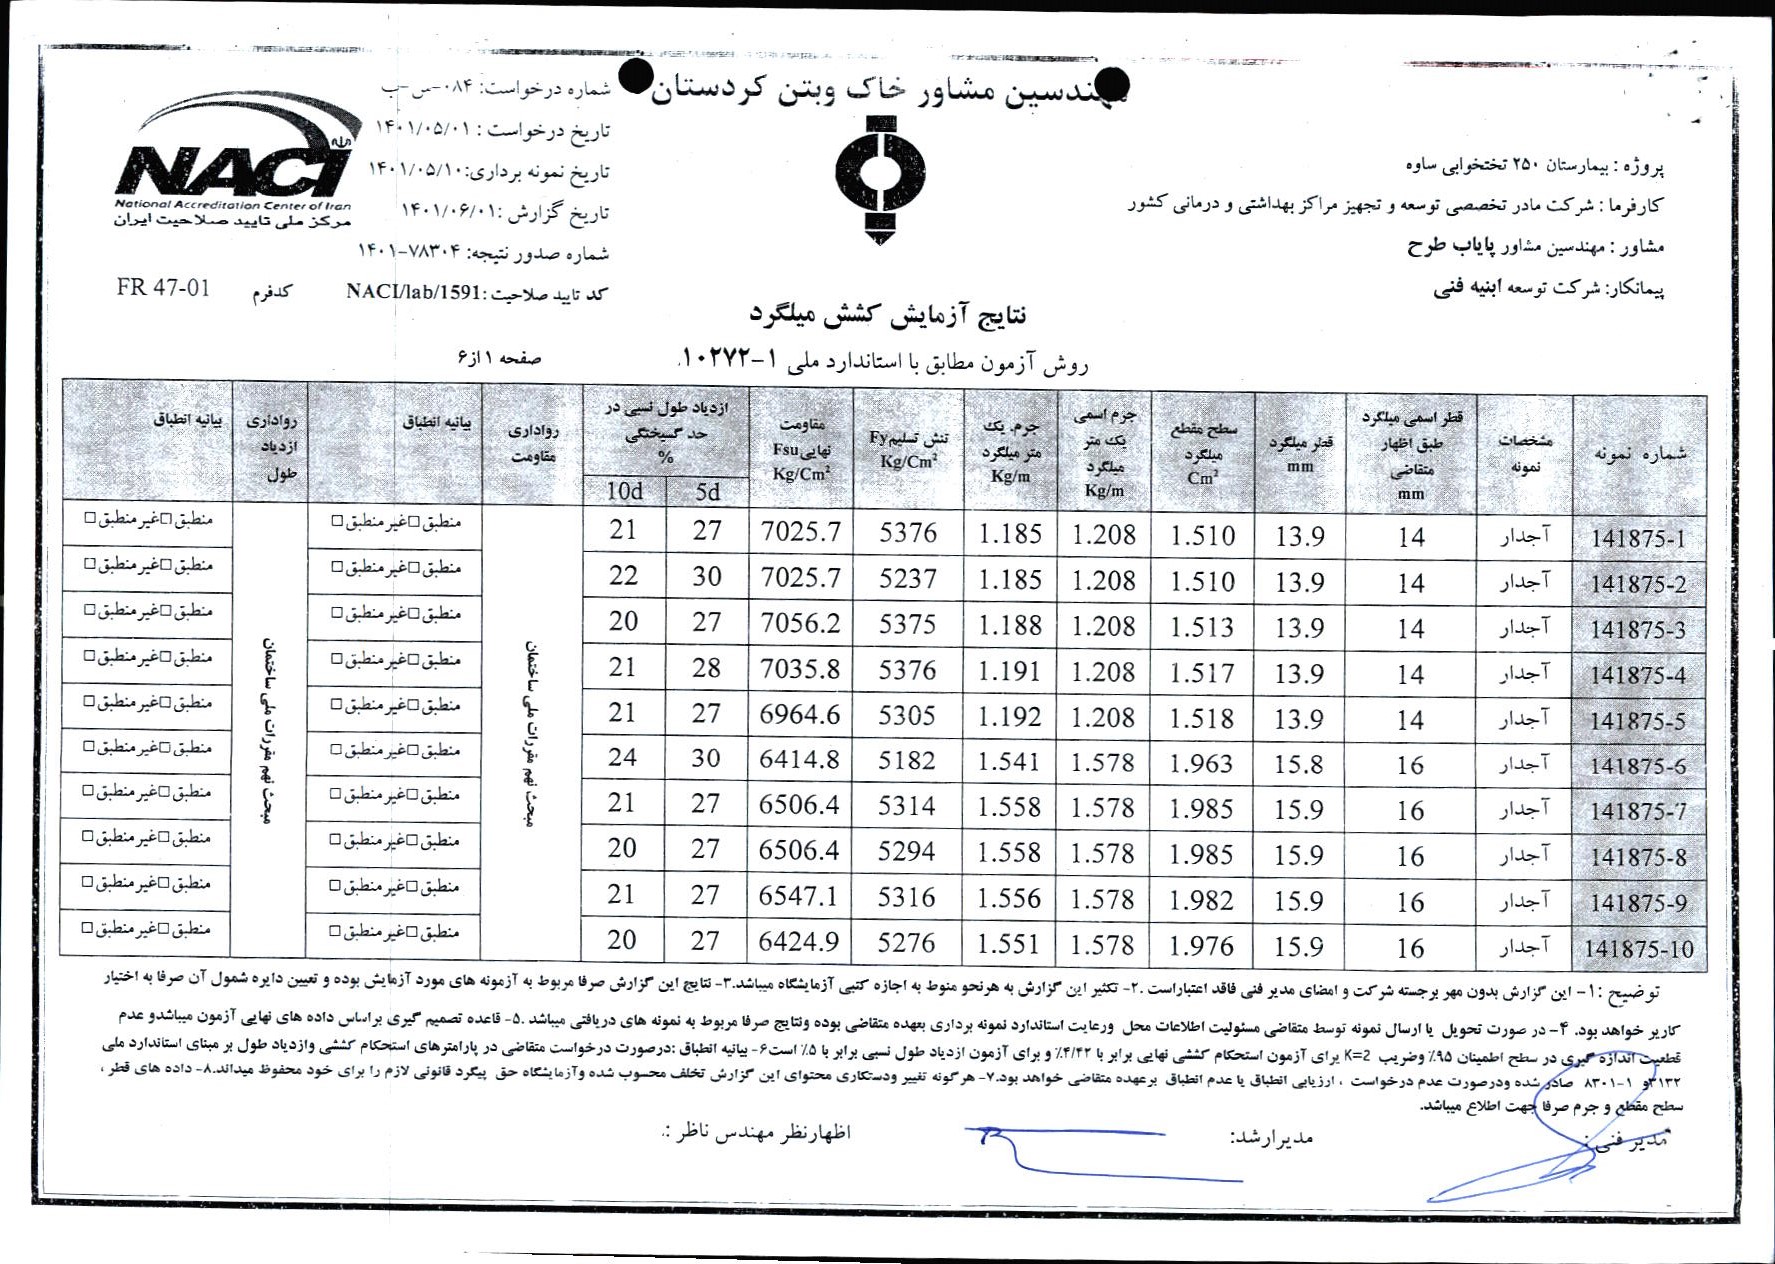 مهندسین مشاور خاک وبتن کردستان
پروژه : بیمارستان ۲۵۰ تختخوابی ساوه
کارفرما : شرکت مادر تخصصی توسعه و تجهیز مراکز بهداشتی و درمانی کشور
مشاور : مهندسین مشاور پایاب طرح
پیمانکار: شرکت توسعه ابنیه فنی
شماره درخواست: ۰۸۴-س-ب
تاریخ درخواست : ۱۴۰۱/۰۵/۰۱
تاریخ نمونه برداری: ۱۴۰۱/۰۵/۱۰
تاریخ گزارش : ۱۴۰۱/۰۶/۰۱
شماره صدور نتیجه: ۷۸۳۰۴-۱۴۰۱
کد تایید صلاحیت :NACI/lab/1591
کدفرم FR 47-01
NACI
National Accreditation Center of Iran
مرکز ملی تایید صلاحیت ایران
نتایج آزمایش کشش میلگرد
روش آزمون مطابق با استاندارد ملی ۱-۱۰۲۷۲.
صفحه ۱ از۶
شماره نمونه | مشخصات نمونه | قطر اسمی میلگرد طبق اظهار متقاضی mm | قطر میلگرد mm | سطح مقطع میلگرد Cm² | جرم اسمی یک متر میلگرد Kg/m | جرم. یک متر میلگرد Kg/m | تنش تسلیم Fy Kg/Cm² | مقاومت نهایی Fsu Kg/Cm² | ازدیاد طول نسبی در حد گسیختگی % 5d | 10d | رواداری مقاومت | بیانیه انطباق | رواداری ازدیاد طول | بیانیه انطباق
141875-1 | آجدار | 14 | 13.9 | 1.510 | 1.208 | 1.185 | 5376 | 7025.7 | 27 | 21 | منطبق□غیرمنطبق□ | منطبق□غیرمنطبق□
141875-2 | آجدار | 14 | 13.9 | 1.510 | 1.208 | 1.185 | 5237 | 7025.7 | 30 | 22 | منطبق□غیرمنطبق□ | منطبق□غیرمنطبق□
141875-3 | آجدار | 14 | 13.9 | 1.513 | 1.208 | 1.188 | 5375 | 7056.2 | 27 | 20 | منطبق□غیرمنطبق□ | منطبق□غیرمنطبق□
141875-4 | آجدار | 14 | 13.9 | 1.517 | 1.208 | 1.191 | 5376 | 7035.8 | 28 | 21 | منطبق□غیرمنطبق□ | منطبق□غیرمنطبق□
141875-5 | آجدار | 14 | 13.9 | 1.518 | 1.208 | 1.192 | 5305 | 6964.6 | 27 | 21 | منطبق□غیرمنطبق□ | منطبق□غیرمنطبق□
141875-6 | آجدار | 16 | 15.8 | 1.963 | 1.578 | 1.541 | 5182 | 6414.8 | 30 | 24 | منطبق□غیرمنطبق□ | منطبق□غیرمنطبق□
141875-7 | آجدار | 16 | 15.9 | 1.985 | 1.578 | 1.558 | 5314 | 6506.4 | 27 | 21 | منطبق□غیرمنطبق□ | منطبق□غیرمنطبق□
141875-8 | آجدار | 16 | 15.9 | 1.985 | 1.578 | 1.558 | 5294 | 6506.4 | 27 | 20 | منطبق□غیرمنطبق□ | منطبق□غیرمنطبق□
141875-9 | آجدار | 16 | 15.9 | 1.982 | 1.578 | 1.556 | 5316 | 6547.1 | 27 | 21 | منطبق□غیرمنطبق□ | منطبق□غیرمنطبق□
141875-10 | آجدار | 16 | 15.9 | 1.976 | 1.578 | 1.551 | 5276 | 6424.9 | 27 | 20 | منطبق□غیرمنطبق□ | منطبق□غیرمنطبق□
مبحث نهم مقررات ملی ساختمان
مبحث نهم مقررات ملی ساختمان
توضیح :۱- این گزارش بدون مهر برجسته شرکت و امضای مدیر فنی فاقد اعتباراست .۲- تکثیر این گزارش به هرنحو منوط به اجازه کتبی آزمایشگاه میباشد.۳- نتایج این گزارش صرفا مربوط به آزمونه های مورد آزمایش بوده و تعیین دایره شمول آن صرفا به اختیار
کاربر خواهد بود. ۴- در صورت تحویل یا ارسال نمونه توسط متقاضی مسئولیت اطلاعات محل ورعایت استاندارد نمونه برداری بعهده متقاضی بوده ونتایج صرفا مربوط به نمونه های دریافتی میباشد .۵- قاعده تصمیم گیری براساس داده های نهایی آزمون میباشدو عدم
قطعیت اندازه گیری در سطح اطمینان ۹۵٪ وضریب K=2 برای آزمون استحکام کششی نهایی برابر با ۴/۴۲٪ و برای آزمون ازدیاد طول نسبی برابر با ۵٪ است۶- بیانیه انطباق :درصورت درخواست متقاضی در پارامترهای استحکام کششی وازدیاد طول بر مبنای استاندارد ملی
۳۱۳۲و ۱-۸۳۰۱ صادر شده ودرصورت عدم درخواست ، ارزیابی انطباق یا عدم انطباق برعهده متقاضی خواهد بود.۷- هرگونه تغییر ودستکاری محتوای این گزارش تخلف محسوب شده وآزمایشگاه حق پیگرد قانونی لازم را برای خود محفوظ میداند.۸- داده های قطر ،
سطح مقطع و جرم صرفا جهت اطلاع میباشد.
مدیر فنی :
مدیرارشد:
اظهارنظر مهندس ناظر :